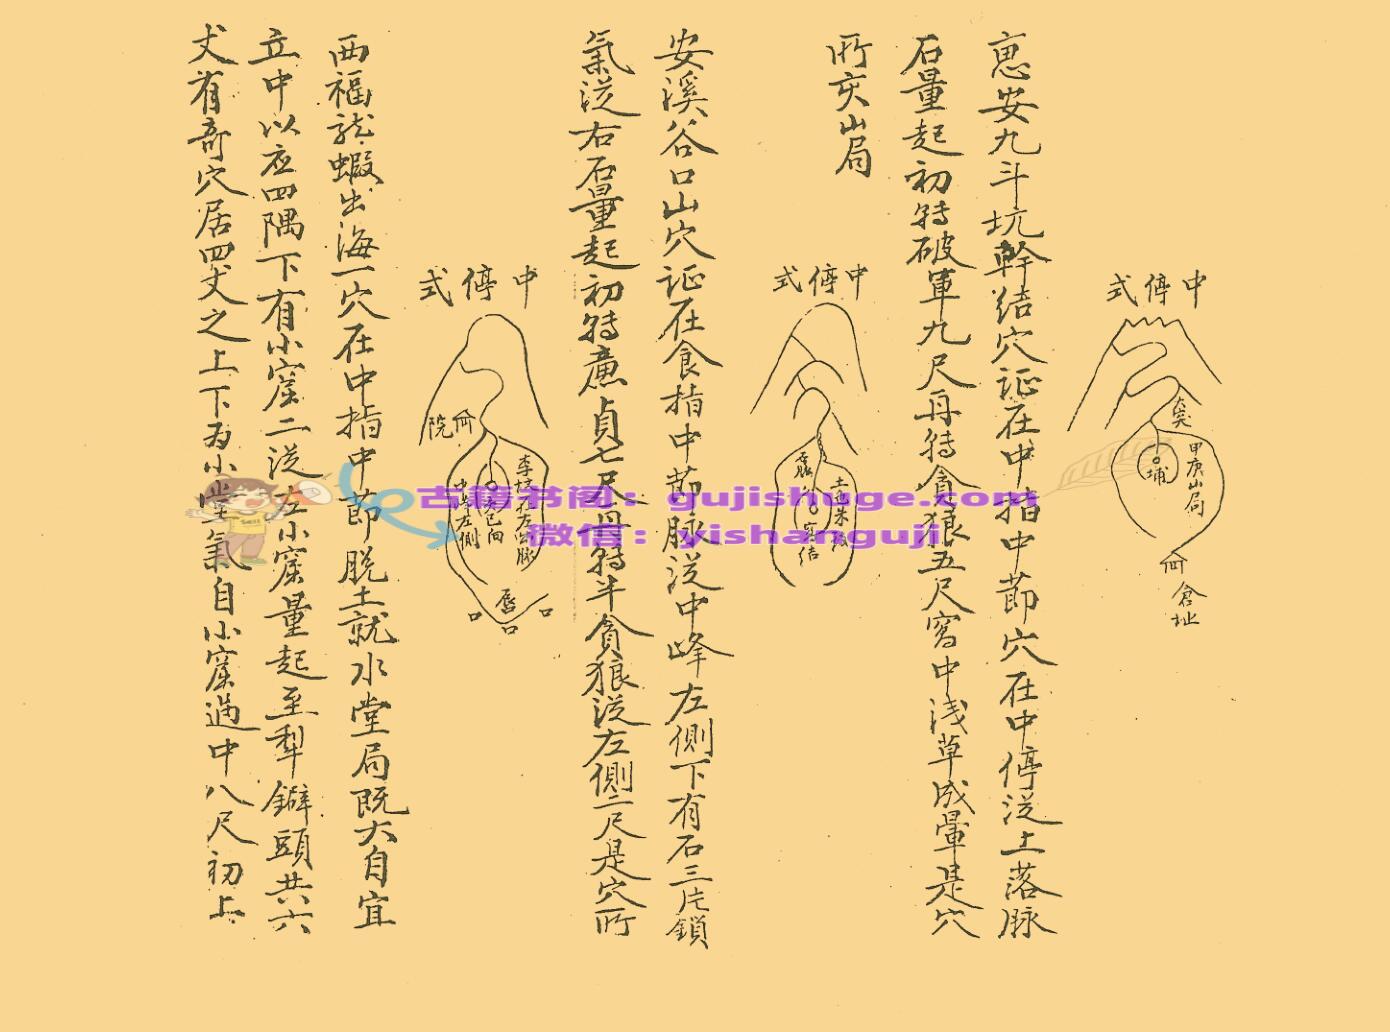 恵安九斗坑幹结穴证在中指中節穴在中停从土落脉
石量起初转破軍九尺再转貪狼五尺窩中浅草成暈是穴
所亥山局
安溪谷口山穴证在食指中節脉从中峰左側下有石三片鎖
氣从右石量起初转廉貞七尺再转半貪狼从左側二尺是穴所
西福龙蝦出海一穴在中指中節脱土就水堂局既大自宜
立中以应四隅下有小窟二从左小窟量起至犁鐴頭共六
丈有奇穴居四丈之上下为小堂氣自小窟過中八尺初上
中停式
甲庚山局
埔
倉址
中停式
中停式
院
中峰左側
唇
古籍书阁：gujishuge.com
微信：yishanguji